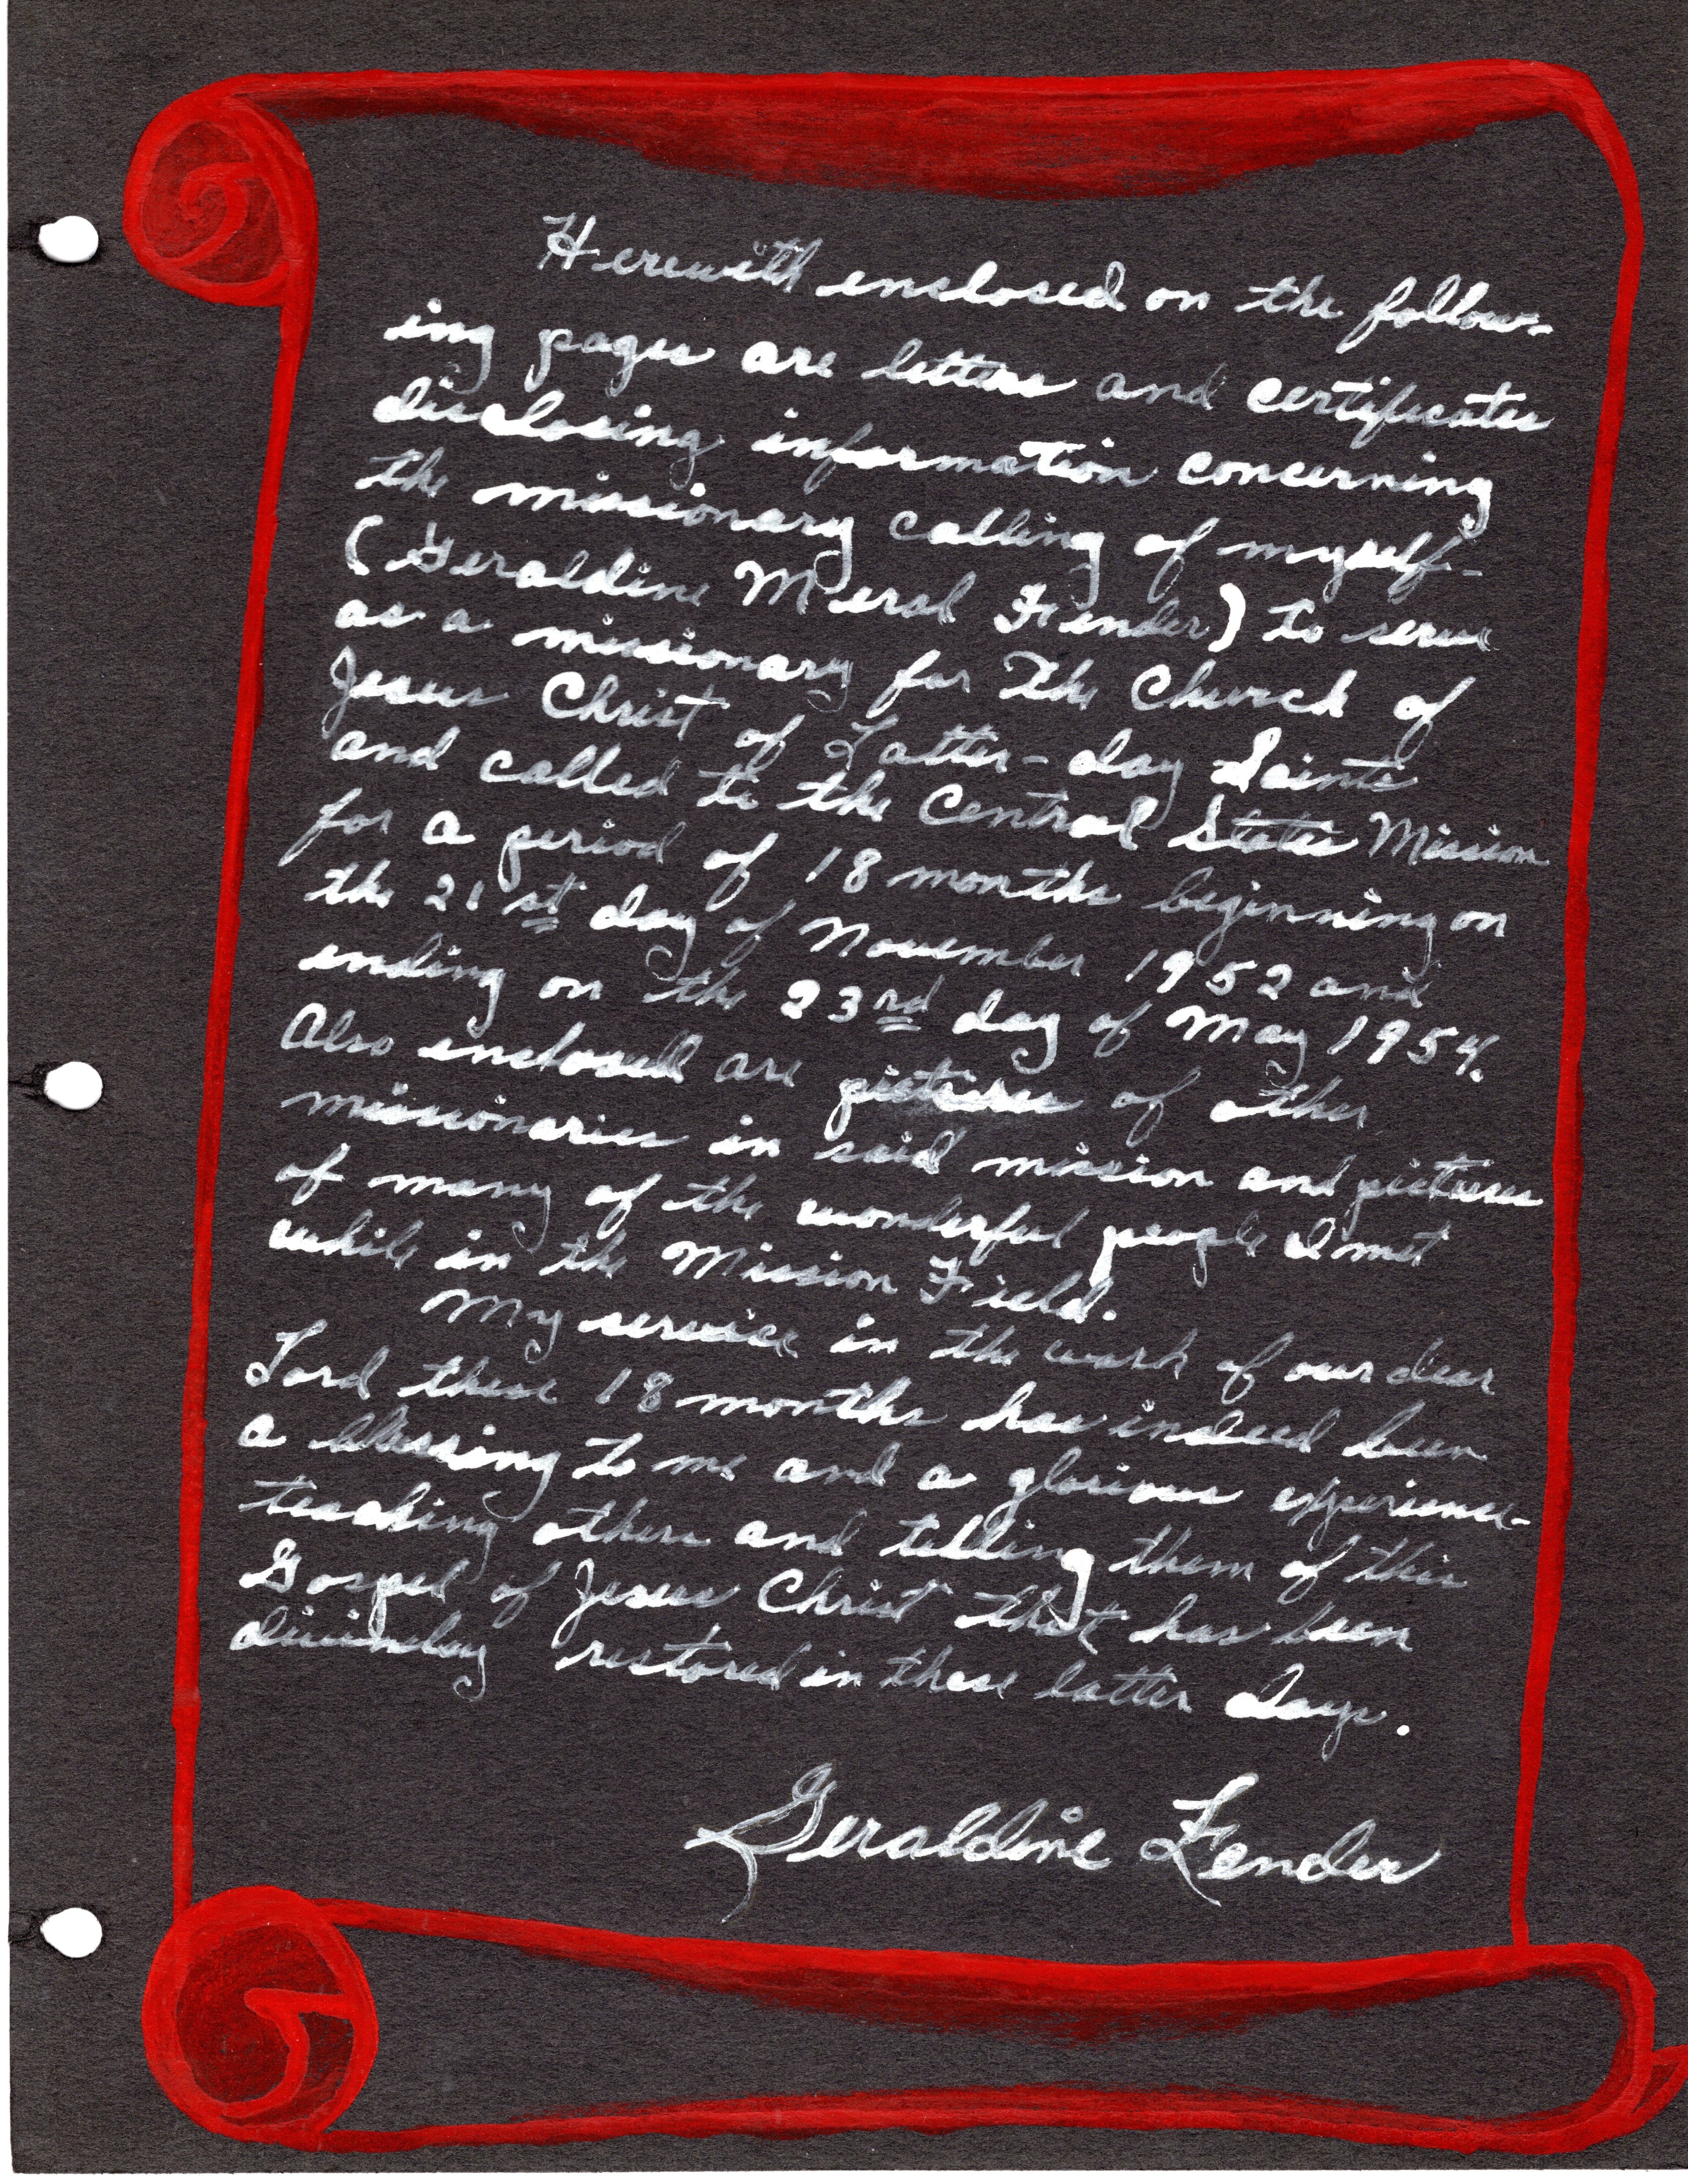 Herewith enclosed on the follow-
ing pages are letters and certificates
disclosing information concerning
the missionary calling of myself-
(Geraldine Meral Fender) to serve
as a missionary for The Church of
Jesus Christ of Latter-day Saints
and called to the Central States Mission
for a period of 18 months beginning on
the 21st day of November 1952 and
ending on the 23rd day of May 1954.
Also enclosed are pictures of other
missionaries in said mission and pictures
of many of the wonderful people I met
while in the Mission Field.
My service in the work of our dear
Lord these 18 months has indeed been
a blessing to me and a glorious experience-
teaching others and telling them of this
Gospel of Jesus Christ that has been
divinely restored in these latter days.
Geraldine Fender